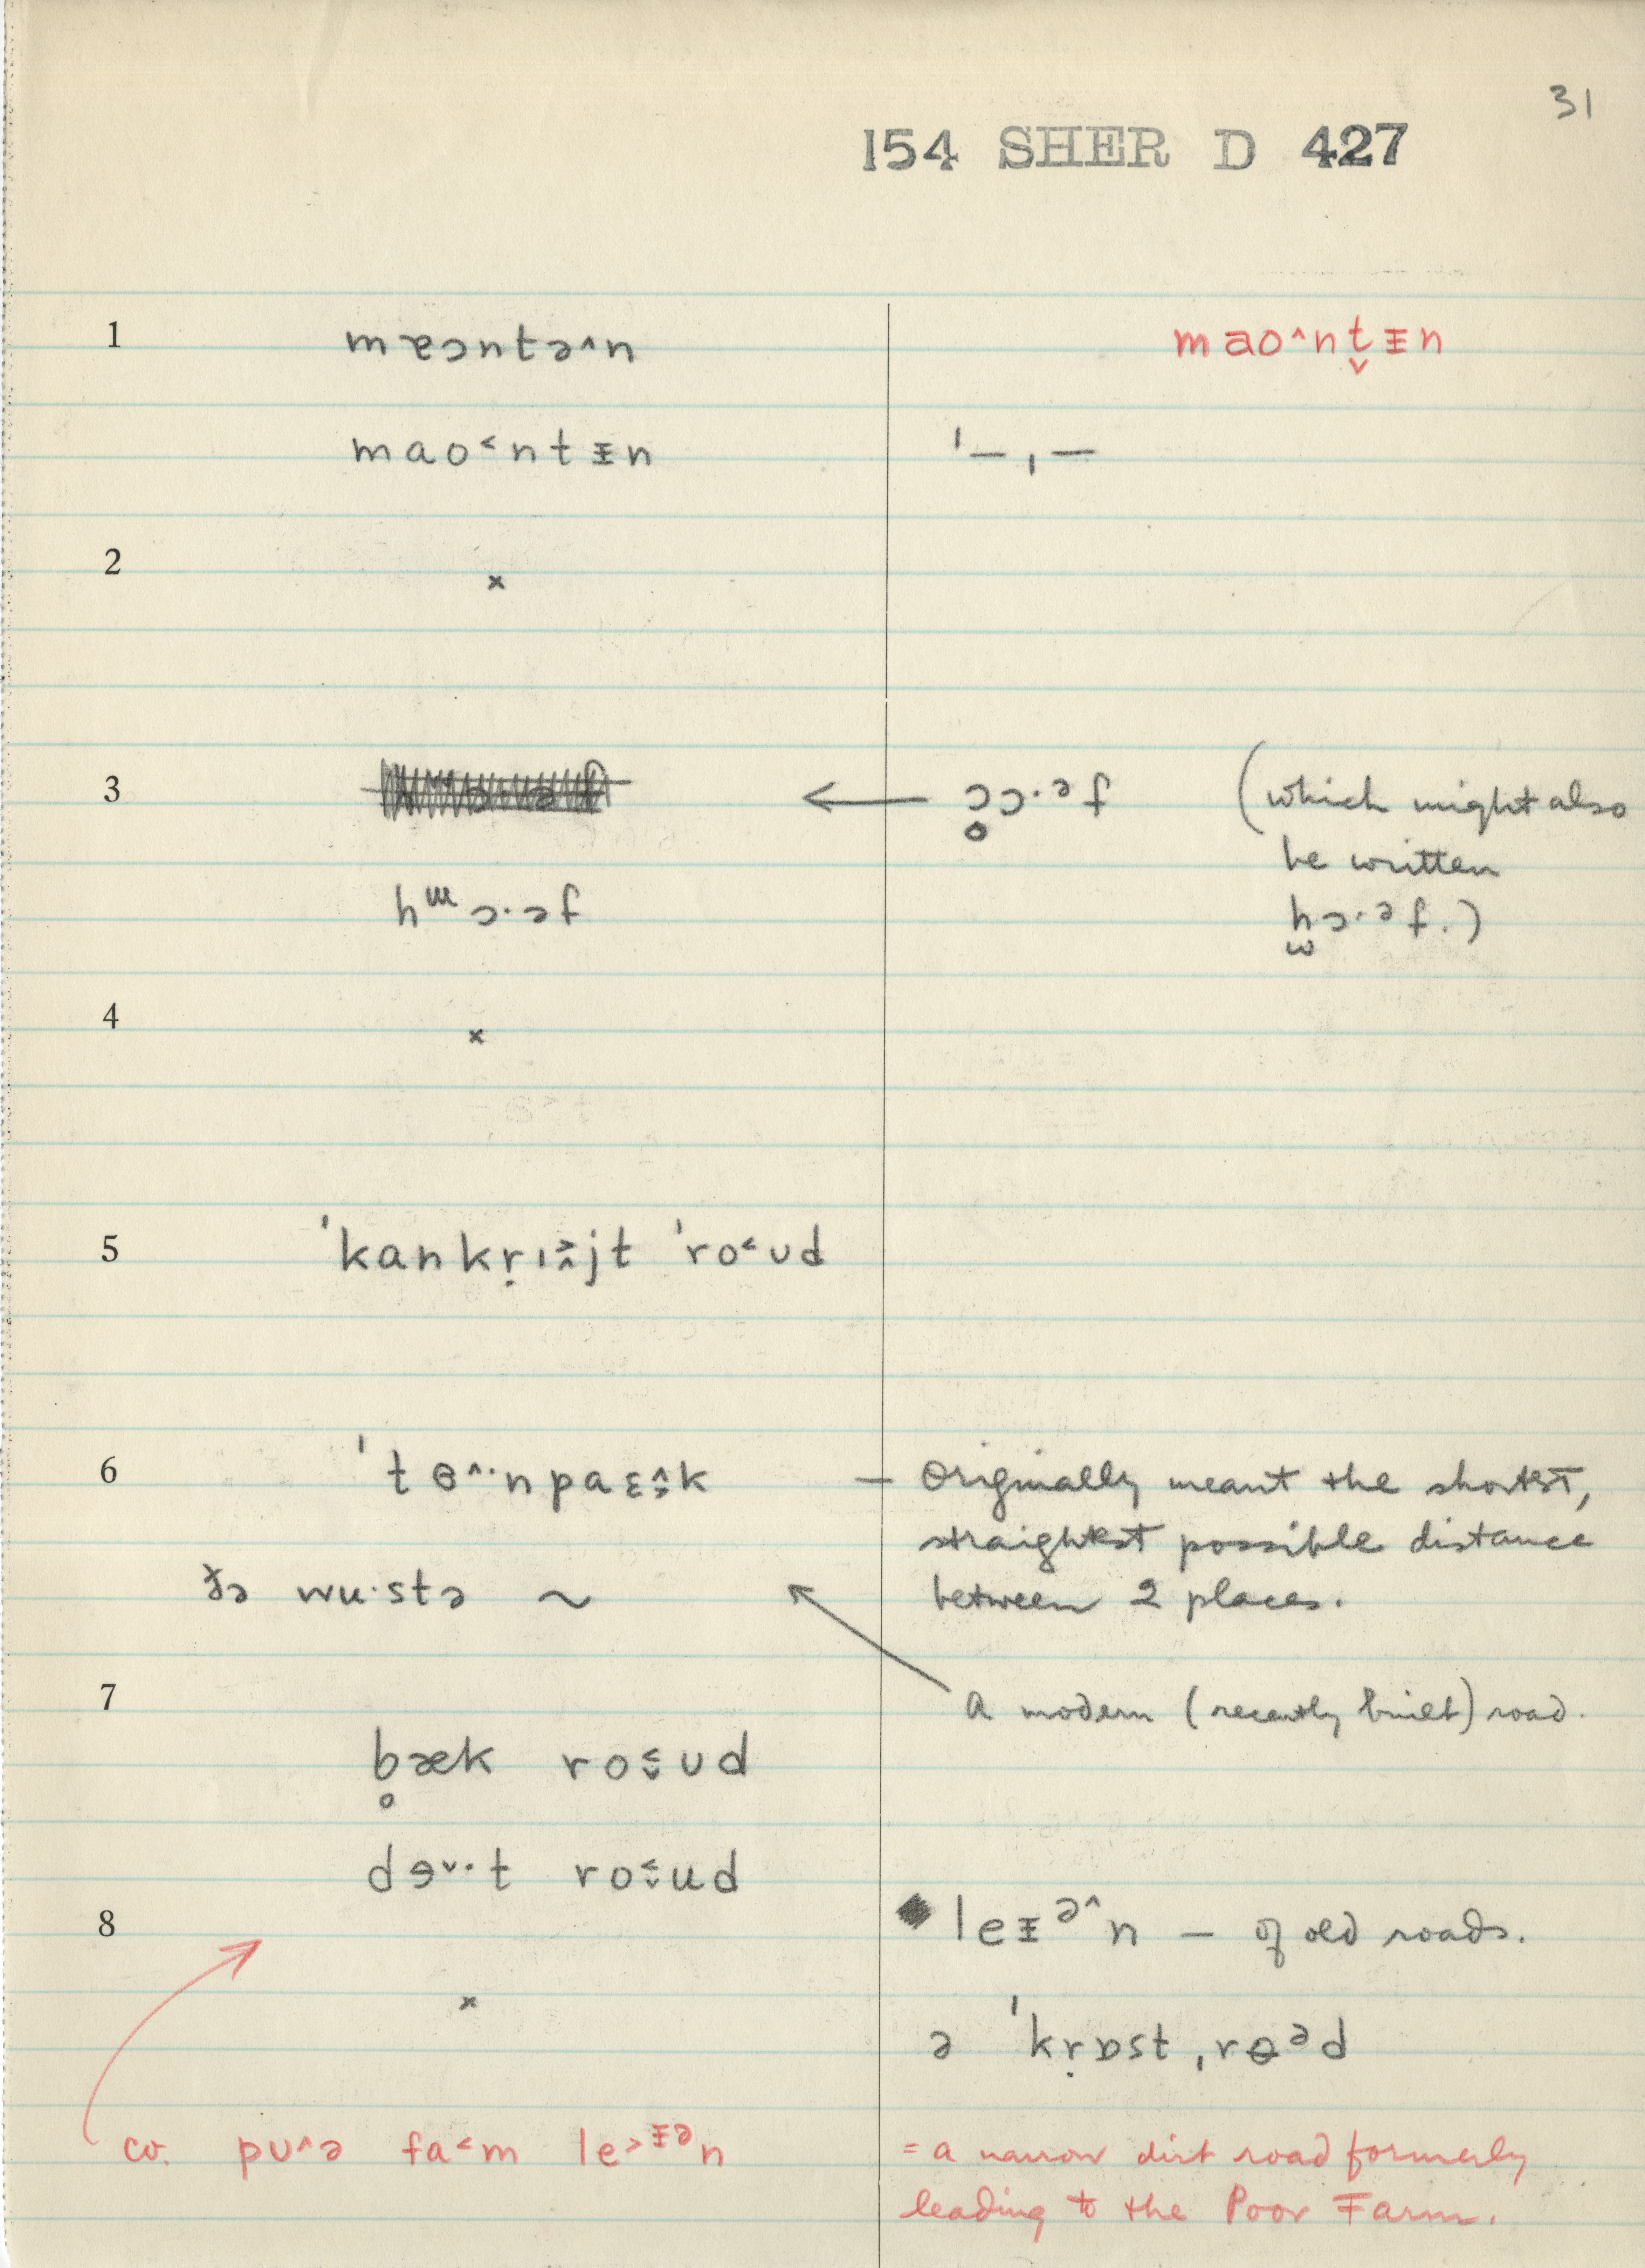 31
154 SHER D 427
1 mɐɔntə^n maoˆnt̬ᵻn
mao˂ntᵻn ˈ– ˌ–
2 ×
3 ← ɔ̥ɔ·əf (which might also
be written
hᵚɔ·əf ɥɔ·əf.)
4 ×
5 ˈkankṛɪ˃̂jt ˈro˂ʊd
6 ˈtɵ^·npaɛ̭k – Originally meant the shortest,
straightest possible distance
ðə wu·stə ~ between 2 places.
7 A modern (recently built) road.
b̥æk ro˂̬ʊd
dɘˇ·t ro˂̬ud
8 leᵻᵊ^n – of old roads.
×
ə ˈkṛɒst ˌrɵᵊd
cv. pʊ^ə fa˂m le˃ᵻᵊn = a narrow dirt road formerly
leading to the Poor Farm.